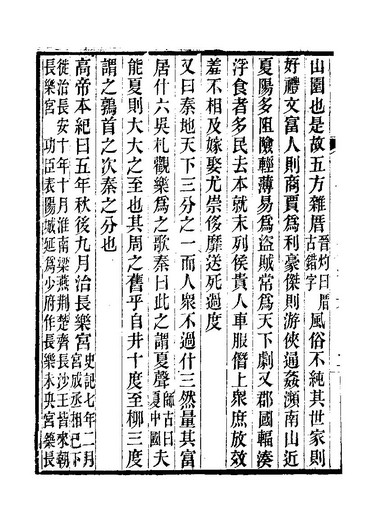 山園也是故五方雜厝晉灼曰厝古錯字風俗不純其世家則
好禮文富人則商賈爲利豪傑則游俠通姦瀕南山近
夏陽多阻險輕薄易爲盜賊常爲天下劇又郡國輻湊
浮食者多民去本就末列侯貴人車服僭上衆庶放效
羞不相及嫁娶尤崇侈靡送死過度
又曰秦地天下三分之一而人衆不過什三然量其富
居什六吳札觀樂爲之歌秦曰此之謂夏聲師古曰夏中國夫
能夏則大大之至也其周之舊乎自井十度至柳三度
謂之鶉首之次秦之分也
高帝本紀曰五年秋後九月治長樂宮史記七年二月宮成丞相已下
徙治長安十年十月淮南梁燕荆楚齊長沙王皆來朝
長樂宮 功臣表陽城延爲少府作長樂未央宮築長